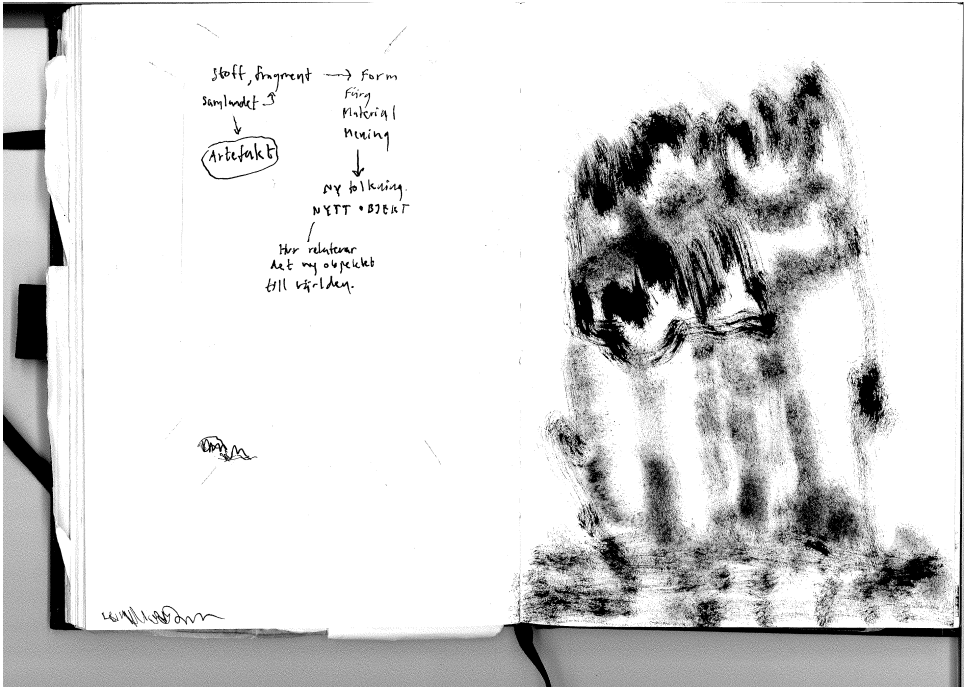 Stoff, fragment → Form
Samlandet
Färg
Material
Mening
Artefakt
NY tolkning.
NYTT OBJEKT
Hur relaterar
det ny objektet
till världen.